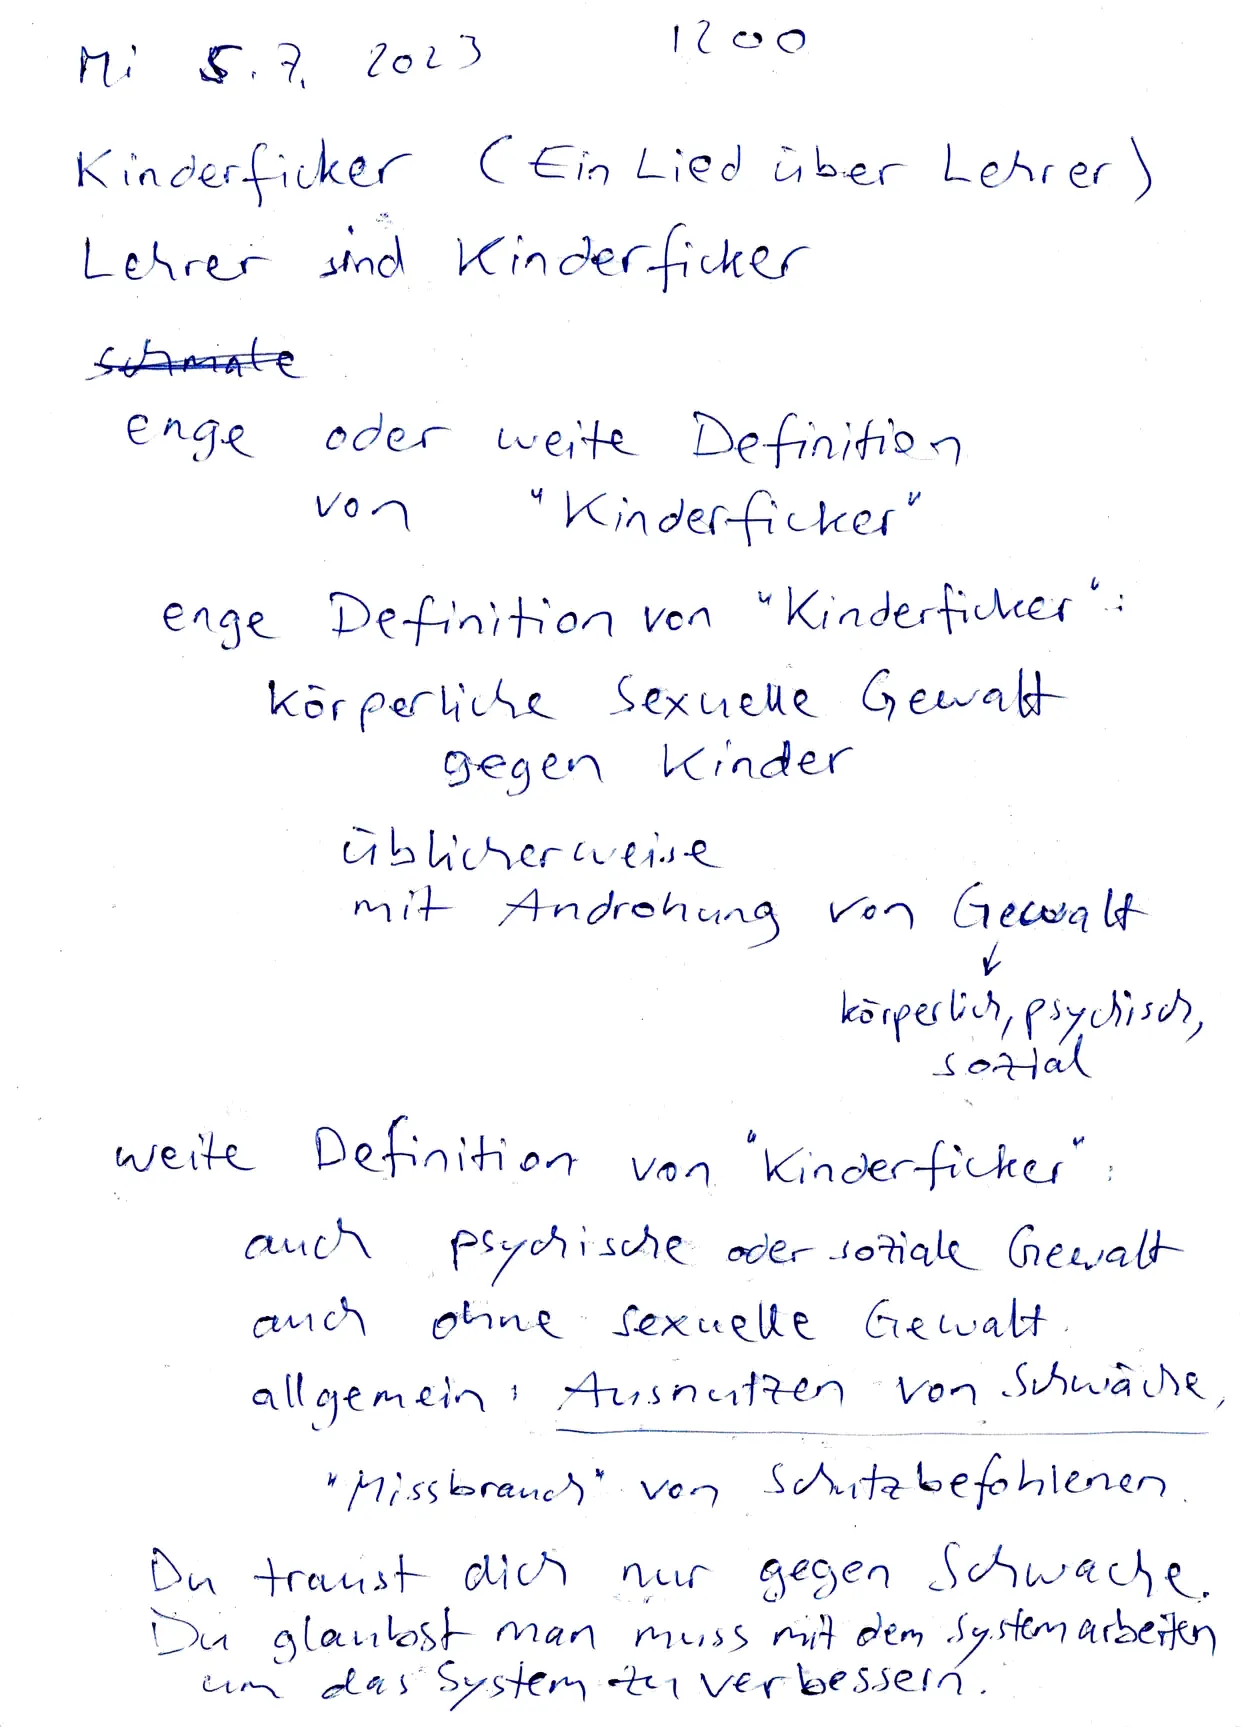 Mi 5.7. 2023 1200
Kinderficker (Ein Lied über Lehrer)
Lehrer sind Kinderficker
schmale
enge oder weite Definition
von "Kinderficker"
enge Definition von "Kinderficker":
körperliche sexuelle Gewalt
gegen Kinder
üblicherweise
mit Androhung von Gewalt
↓
körperlich, psychisch,
sozial
weite Definition von "Kinderficker":
auch psychische oder soziale Gewalt
auch ohne sexuelle Gewalt.
allgemein: Ausnutzen von Schwäche,
"Missbrauch" von Schutzbefohlenen.
Du traust dich nur gegen Schwache.
Du glaubst man muss mit dem System arbeiten
um das System zu verbessern.